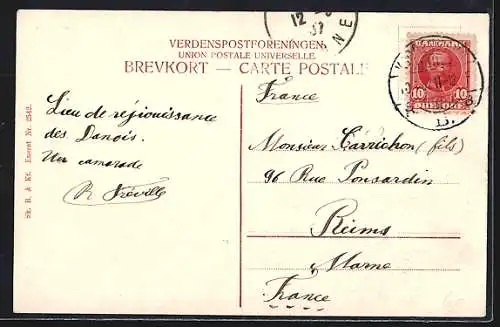 VERDENSPOSTFORENINGEN
UNION POSTALE UNIVERSELLE.
BREVKORT — CARTE POSTALE
DANMARK
10 10
12
NE
B.
France
Lieu de réjouissance
des Danois.
Un camarade
R Fréville
Monsieur Carrichon (fils)
96 Rue Ponsardin
Reims
Marne
France
Stk. B. & Kt. Eneret Nr. 2549.